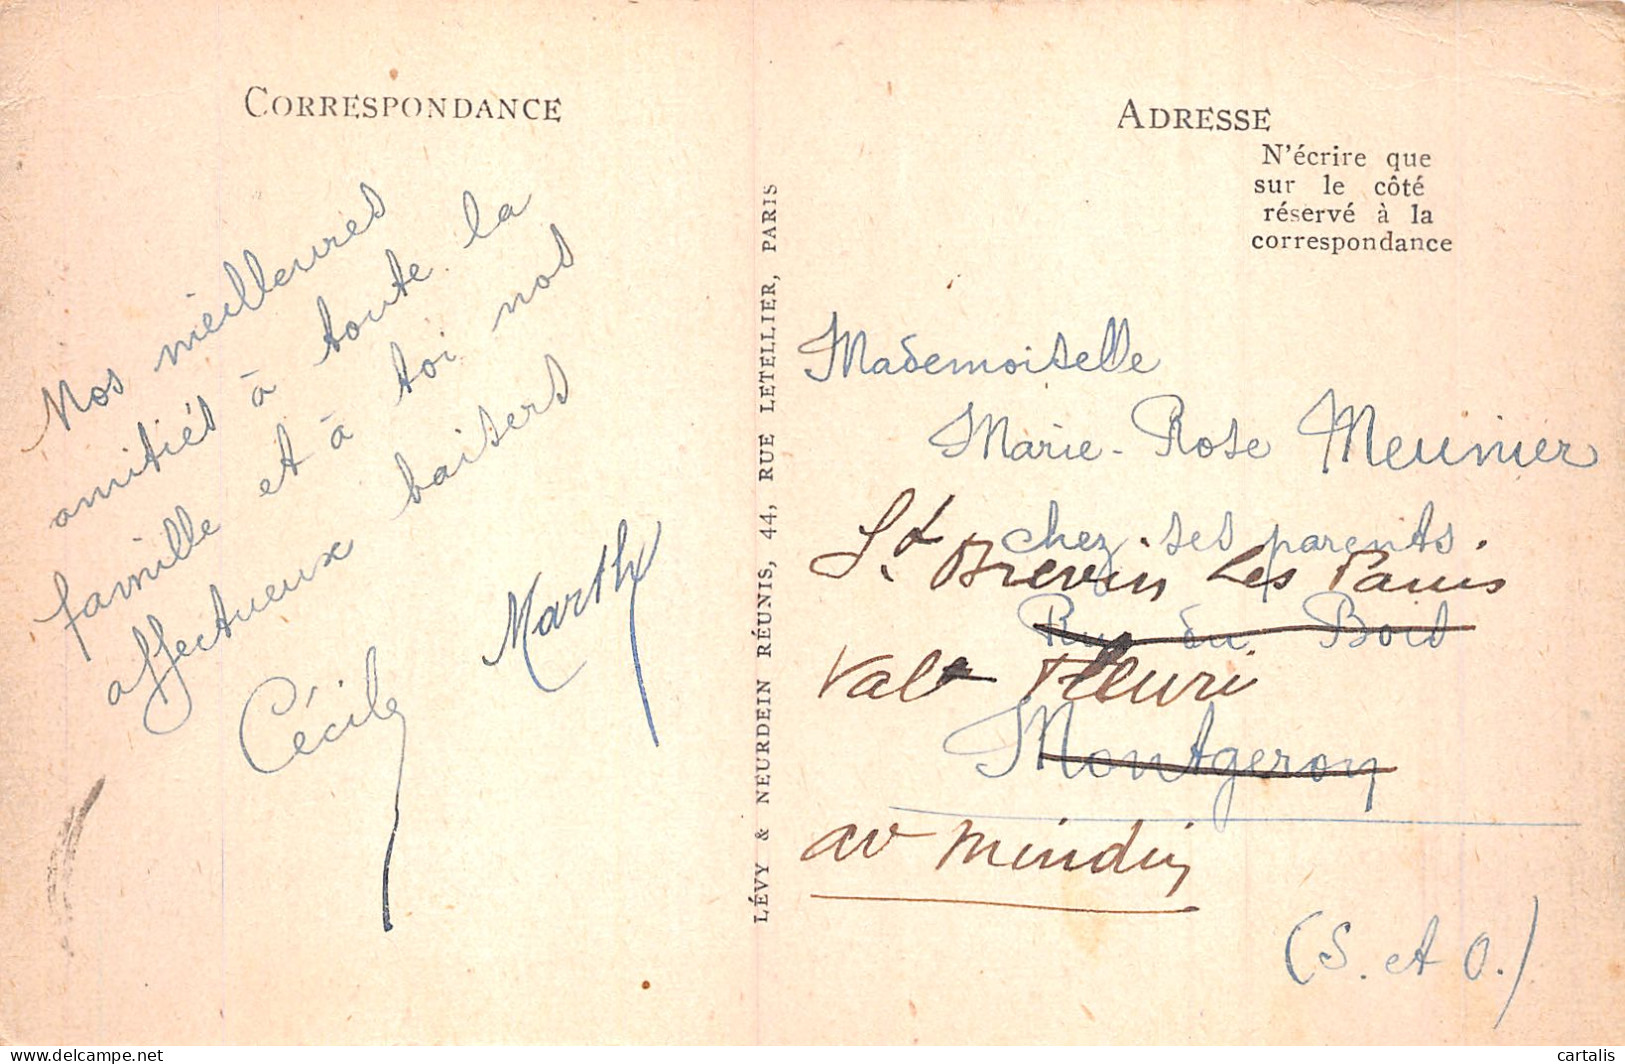 CORRESPONDANCE
Nos meilleures
amitiés à toute la
famille et à toi nos
affectueux baisers
Cécile Marthe
LÉVY & NEURDEIN RÉUNIS, 44, RUE LETELLIER, PARIS
ADRESSE
N'écrire que
sur le côté
réservé à la
correspondance
Mademoiselle
Marie-Rose Meunier
chez ses parents
St Brevin Les Pains
Rue du Bois
Val Fleuri
Montgeron
av Mindin
(S. et O.)
delcampe.net
cartalis